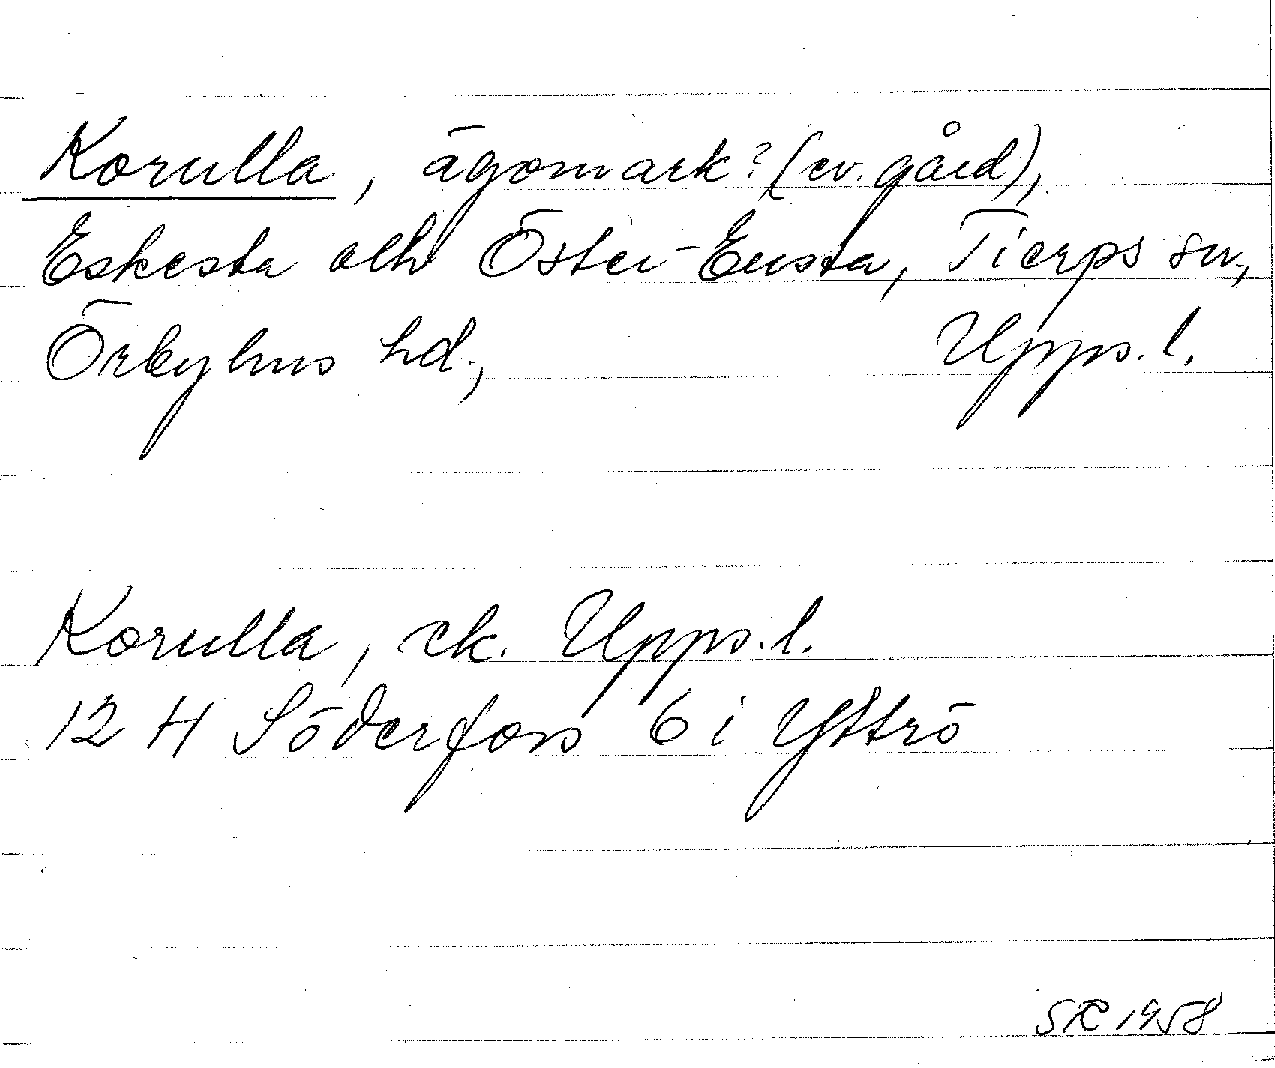 Korulla, ägomark? (ev. gård),
Eskesta och Öster-Ensta, Tierps sn,
Örbyhus hd., Upps. l.
Korulla, ek. Upps. l.
12 H Söderfors 6 i Yttrö
SR 1958